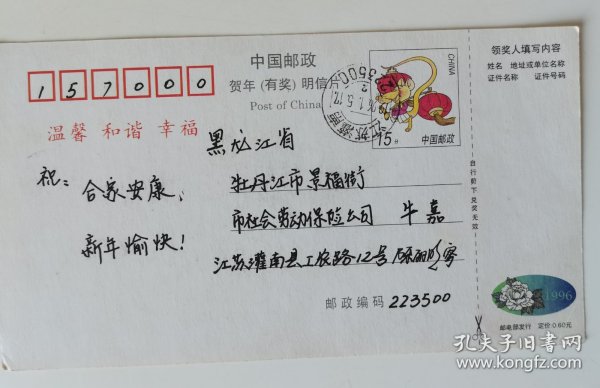 157000
中国邮政
贺年(有奖)明信片
Post of China
CHINA
15分
中国邮政
领奖人填写内容
姓名 地址或单位名称
证件名称 证件号码
温馨 和谐 幸福
黑龙江省
祝：
合家安康、
牡丹江市景福街
新年愉快！
市社会劳动保险公司 牛嘉
江苏灌南县工农路12号
寄
邮政编码 223500
自行剪下兑奖无效
1996
邮电部发行 定价 0.60元
孔夫子旧书网
www.kongfz.com